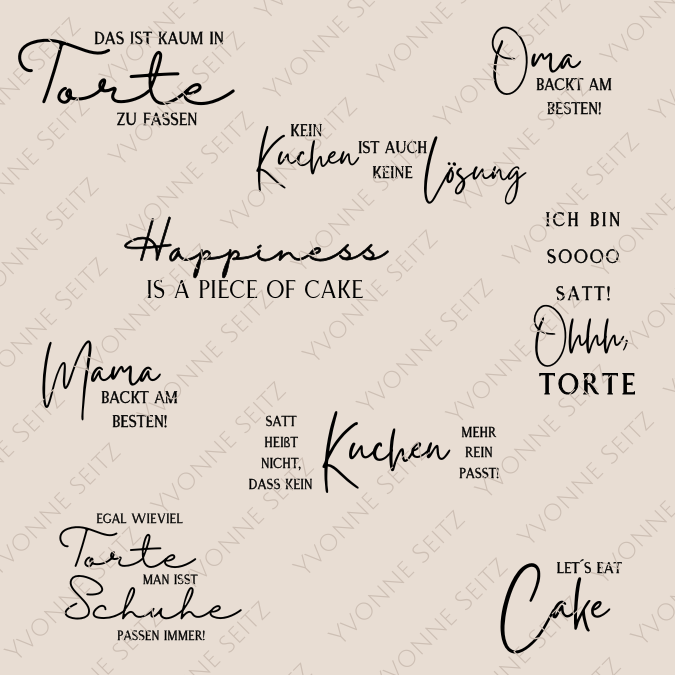 DAS IST KAUM IN
Torte
ZU FASSEN
Oma
BACKT AM
BESTEN!
KEIN
Kuchen IST AUCH
KEINE Lösung
Happiness
IS A PIECE OF CAKE
ICH BIN
SOOOO
SATT!
Ohhh,
TORTE
Mama
BACKT AM
BESTEN!
SATT
HEIßT
NICHT,
DASS KEIN
Kuchen
MEHR
REIN
PASST!
EGAL WIEVIEL
Torte
MAN ISST
Schuhe
PASSEN IMMER!
LET´S EAT
Cake
YVONNE SEITZ